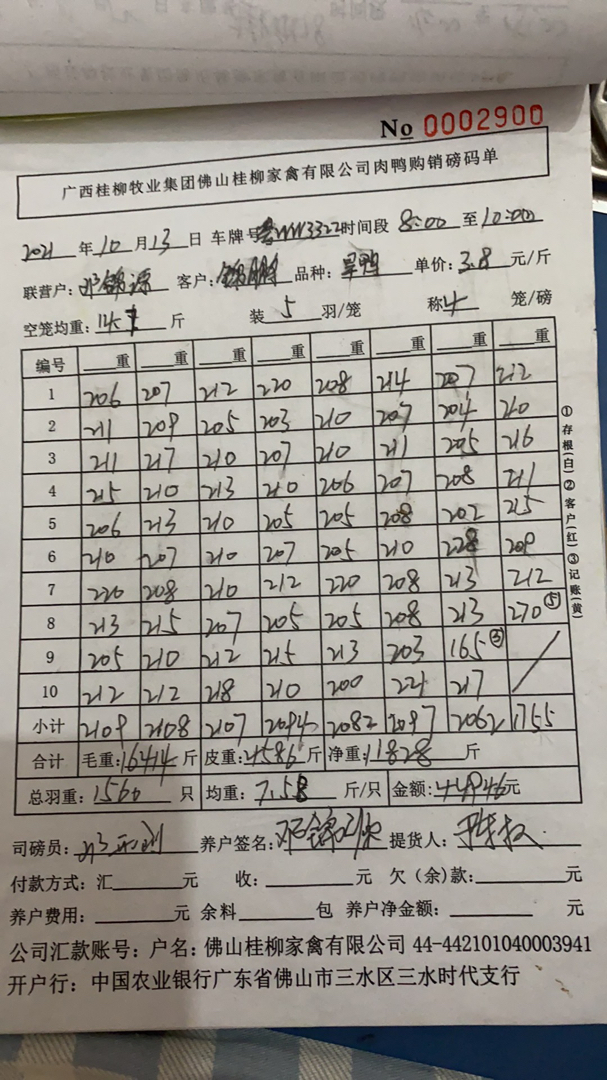 No 0002900
广西桂柳牧业集团佛山桂柳家禽有限公司肉鸭购销磅码单
2021年10月13日 车牌号WW3322时间段8:00至10:00
联营户：邓锦源 客户：锦鹏 品种：旱鸭 单价：3.8元/斤
空笼均重：14.7斤 装5羽/笼 称4笼/磅
编号 重 重 重 重 重 重 重 重
1 206 207 212 220 208 214 207 212
2 211 209 205 203 210 207 204 210
3 211 217 210 207 210 211 205 216
4 215 210 213 210 206 207 208 211
5 206 213 210 205 205 208 202 215
6 210 207 210 207 205 210 228 209
7 220 208 210 212 220 208 213 212
8 213 215 207 205 205 208 213 270⑤
9 205 210 212 215 213 203 165③
10 212 212 218 210 200 221 217
小计 2109 2108 2107 2094 2082 2097 2062 1755
合计 毛重：16414斤 皮重：4586斤 净重：11828斤
总羽重：1560只 均重：7.58斤/只 金额：44946元
①存根(白)②客户(红)③记账(黄)
司磅员： 养户签名：邓锦源 提货人：
付款方式：汇 元 收： 元 欠（余）款： 元
养户费用： 元 余料 包 养户净金额： 元
公司汇款账号：户名：佛山桂柳家禽有限公司 44-442101040003941
开户行：中国农业银行广东省佛山市三水区三水时代支行